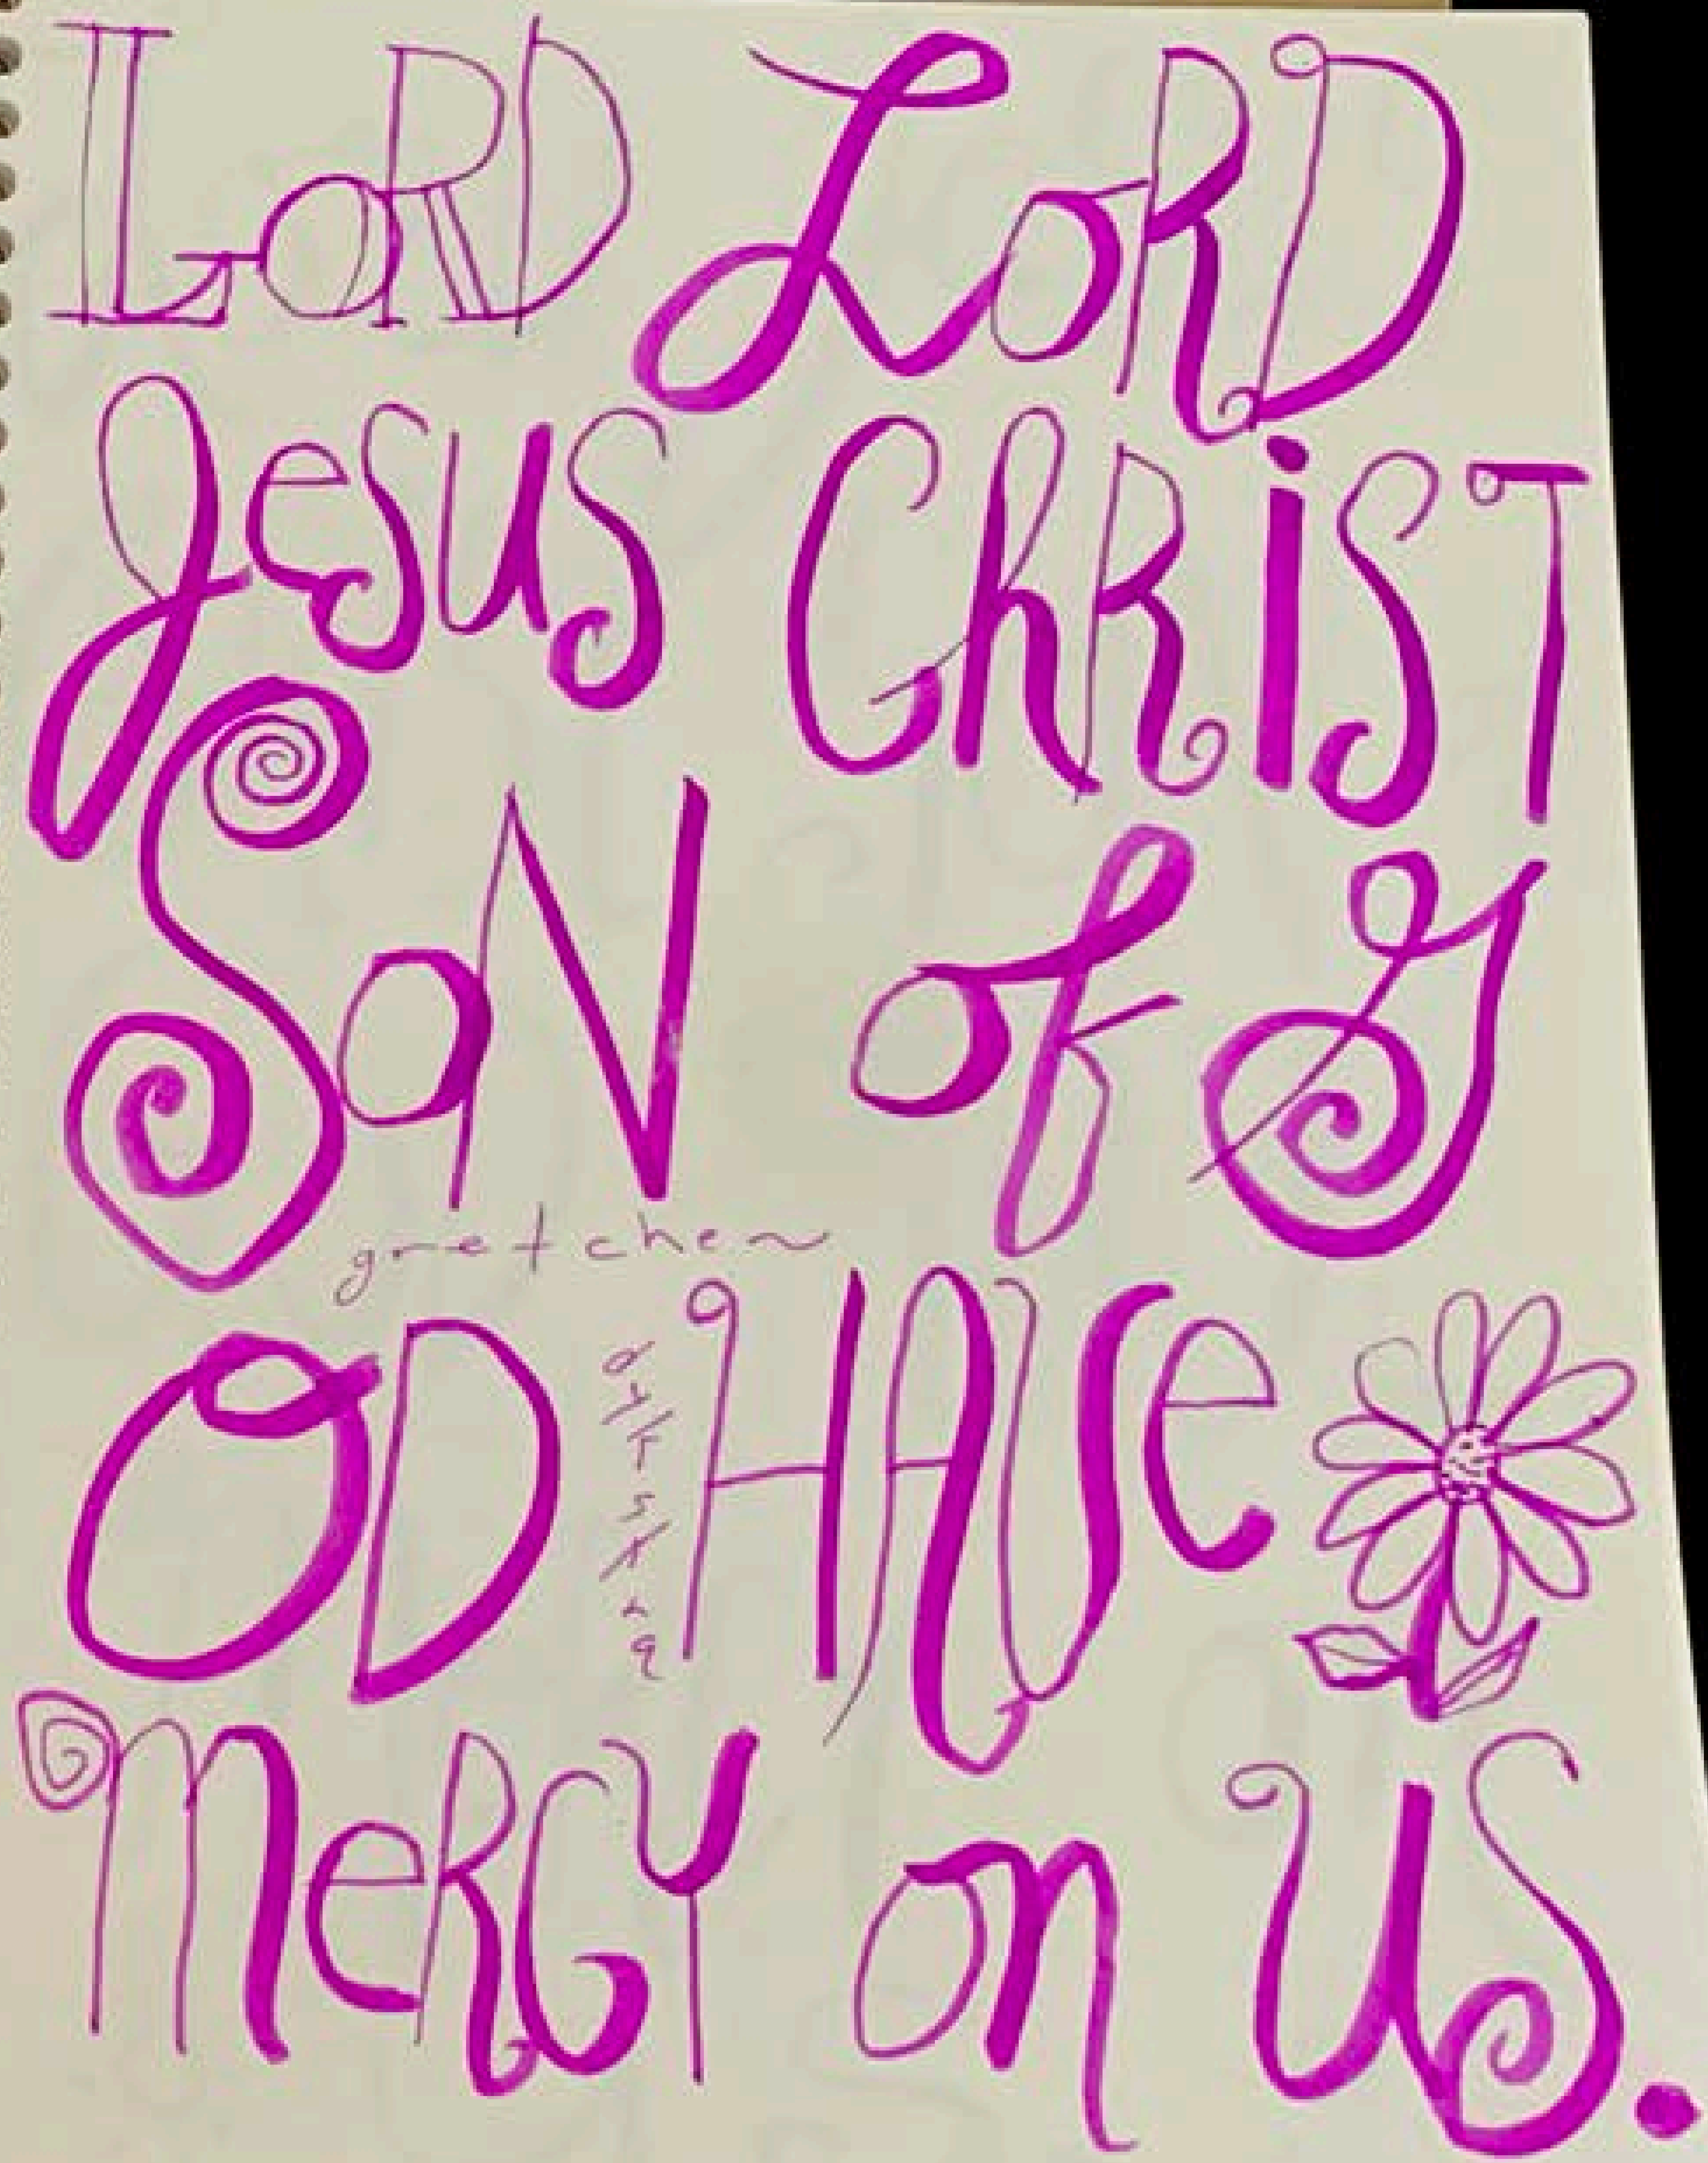 LoRD LoRD
Jesus ChRiST
SoN of G
gretchen
OD HAVe
MeRCY on US.